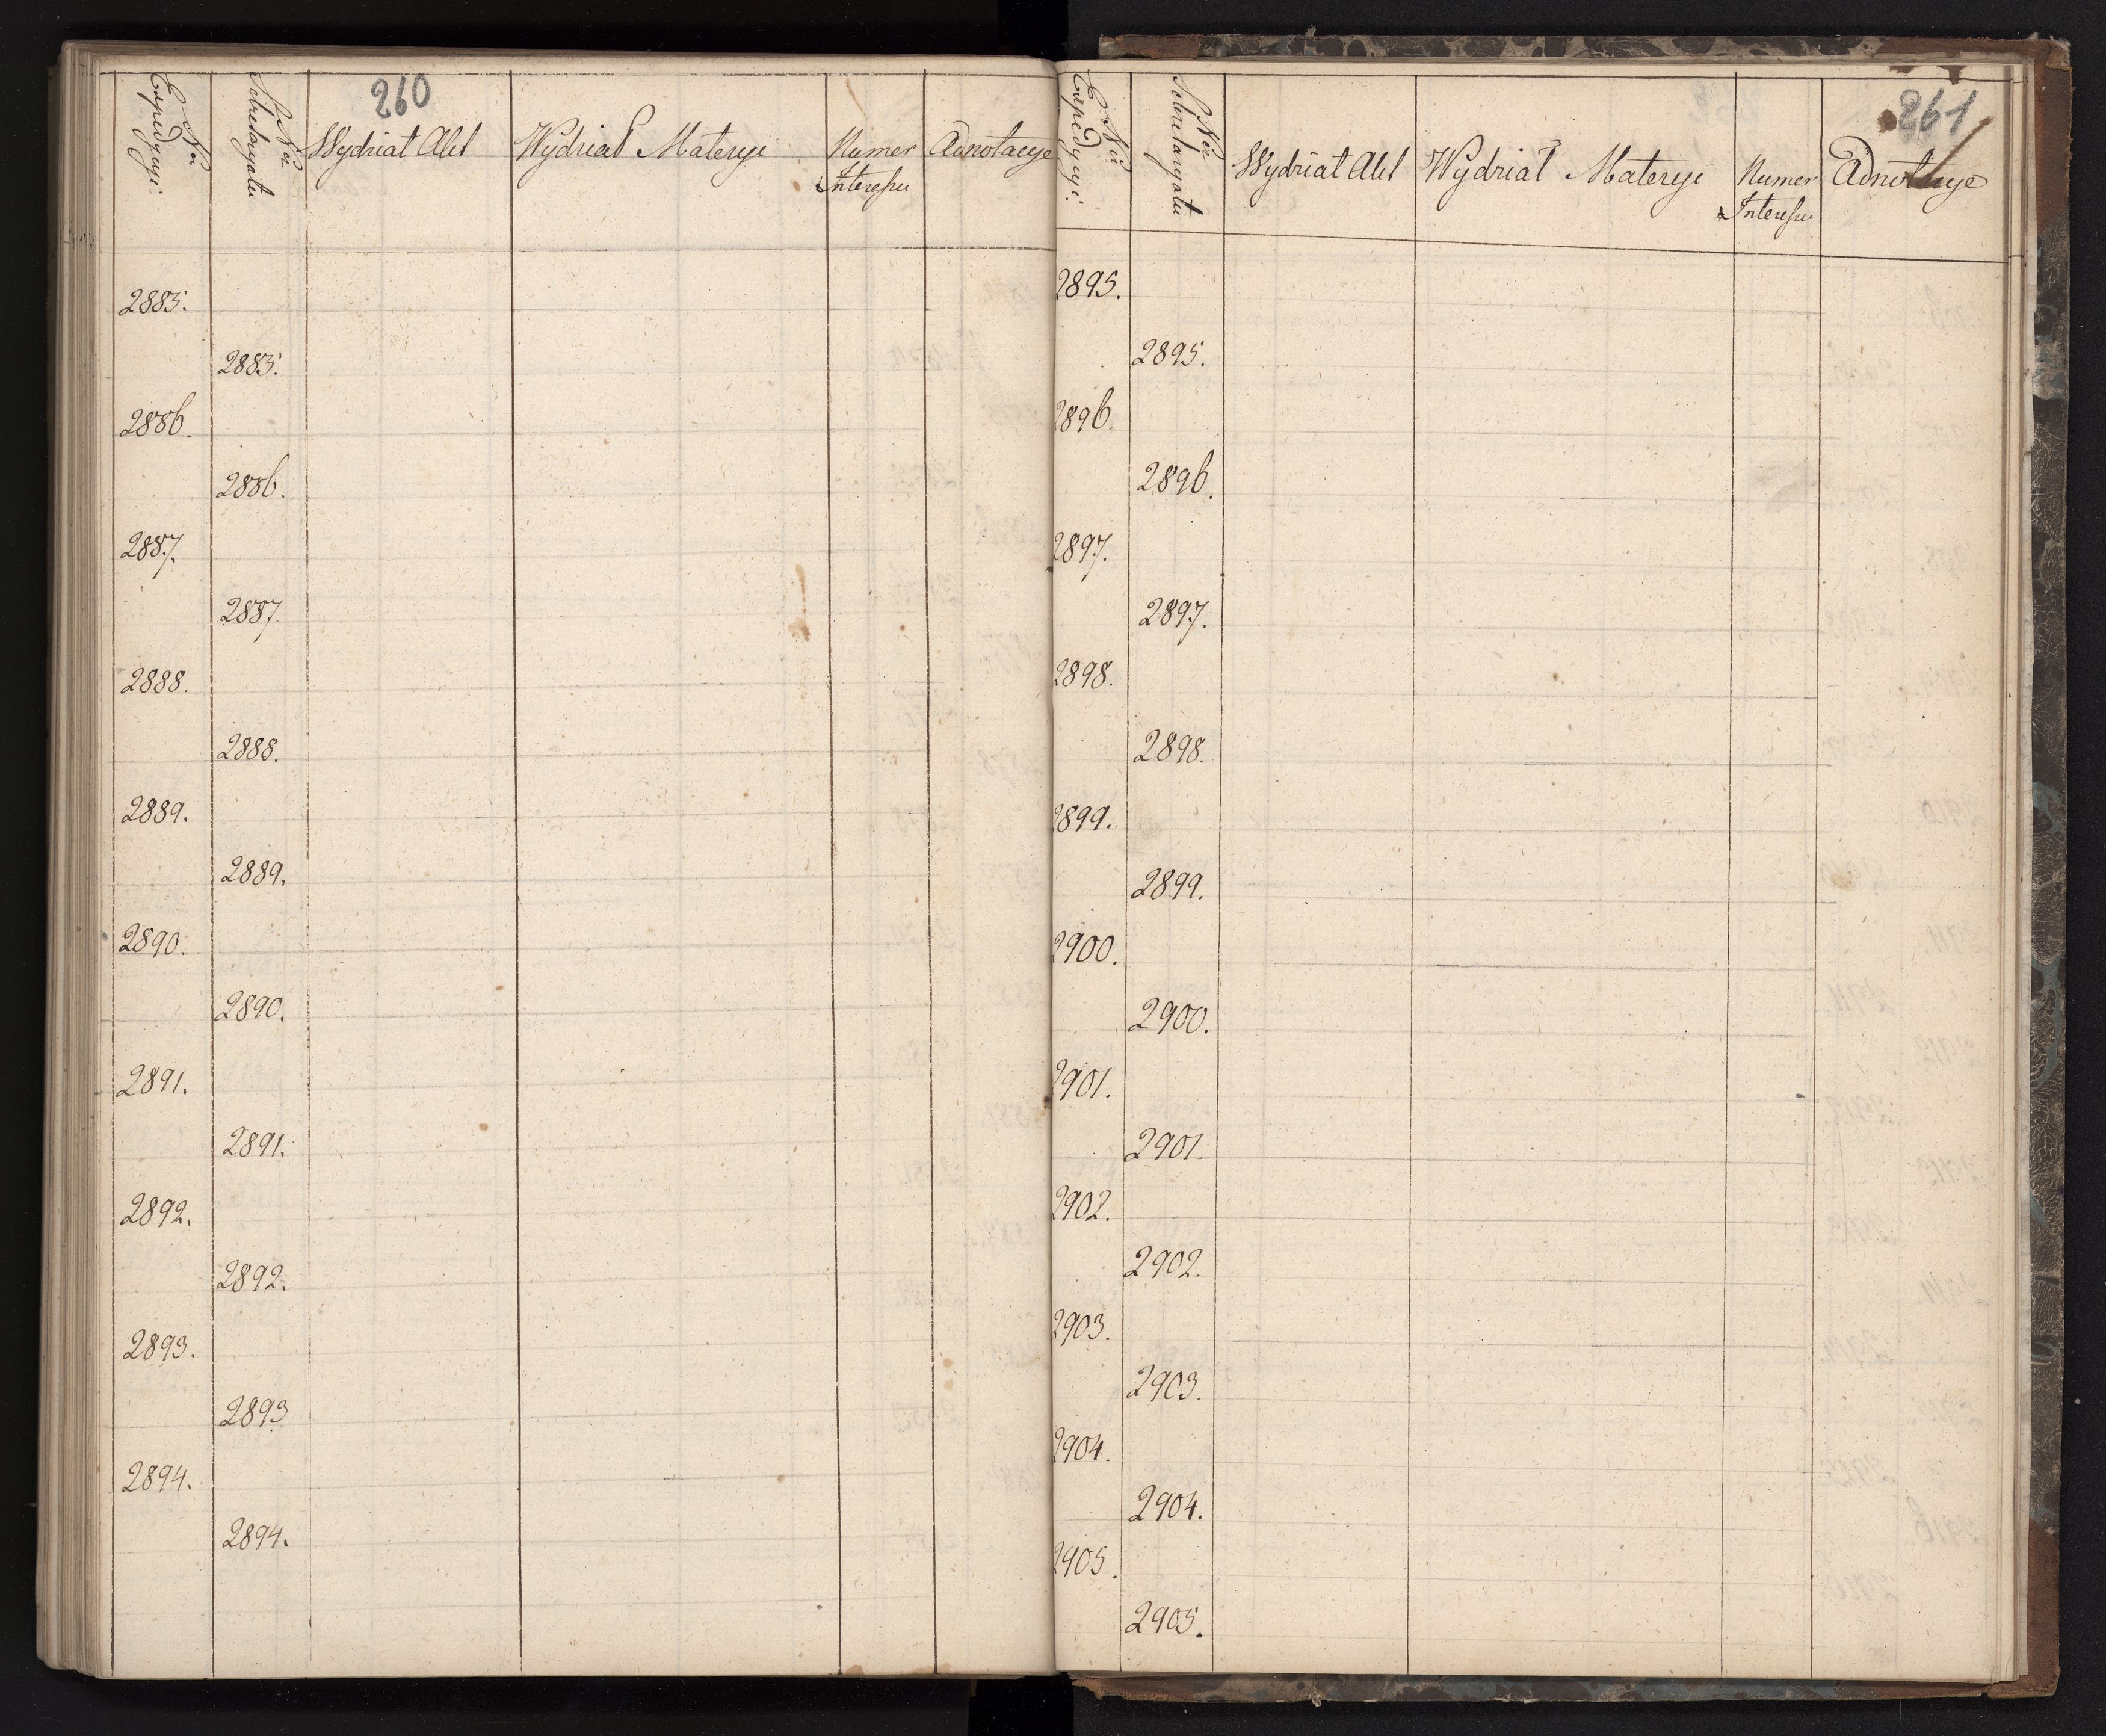 260
Nr Expedycyi
Nr Sekretaryatu
Wydział Akt
Wydział Materyi
Numer
Interessu
Adnotacye
2885.
2885.
2886.
2886.
2887.
2887
2888.
2888.
2889.
2889.
2890.
2890.
2891.
2891.
2892.
2892.
2893.
2893
2894.
2894.
261
Nr Expedycyi
Nr Sekretaryatu
Wydział Akt
Wydział Materyi
Numer
Interessu
Adnotacye
2895.
2895.
2896.
2896.
2897.
2897.
2898.
2898.
2899.
2899.
2900.
2900.
2901.
2901.
2902.
2902.
2903.
2903.
2904.
2904.
2905.
2905.